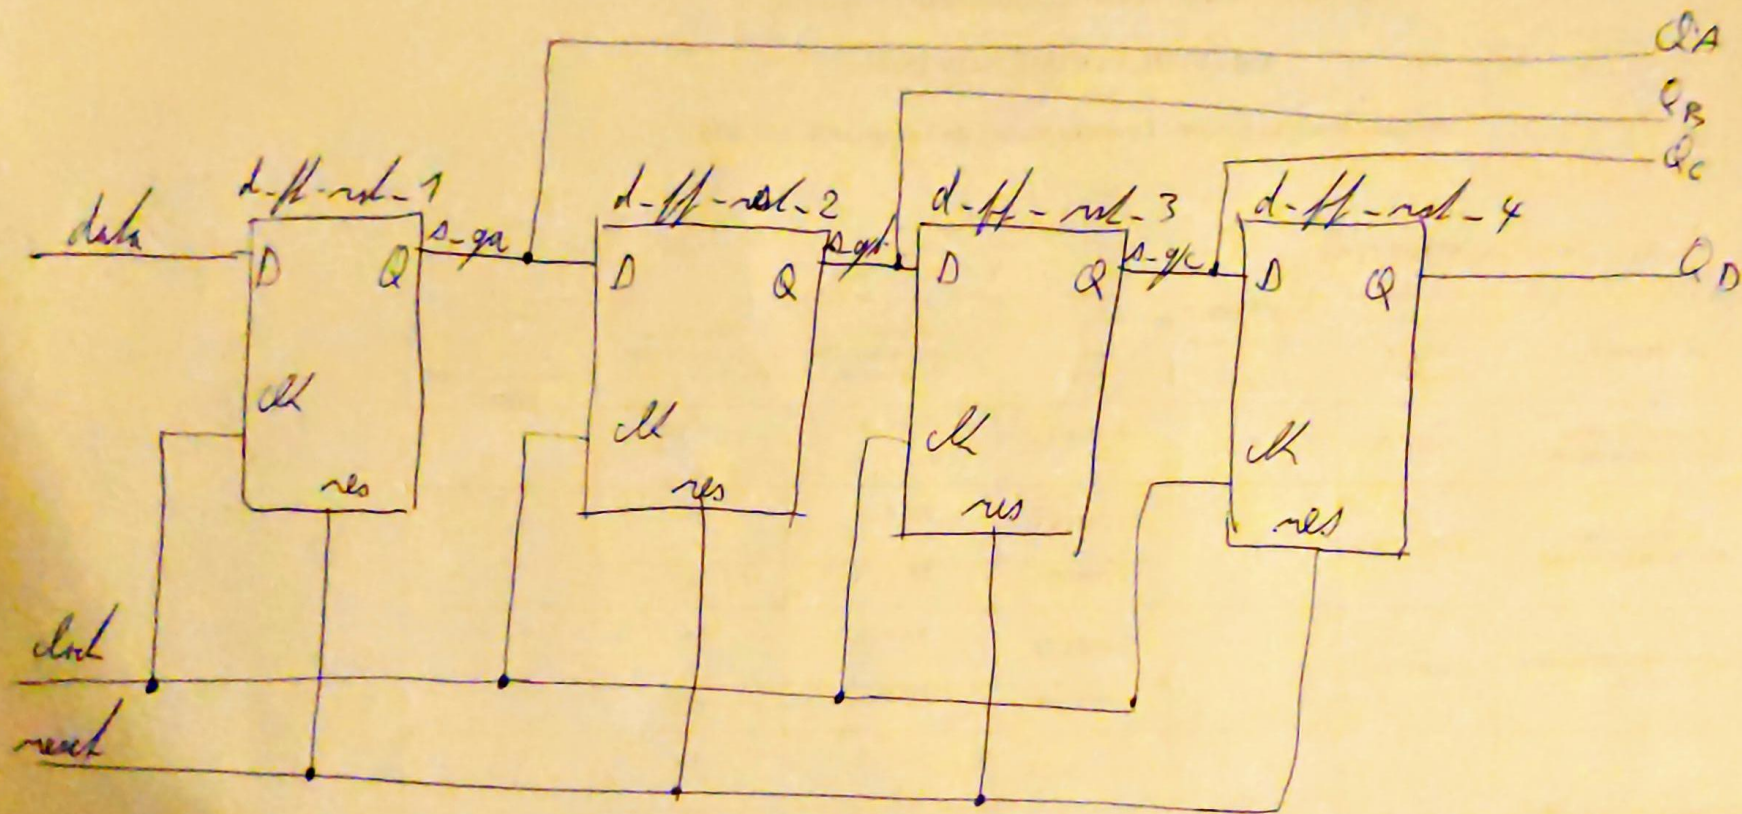 QA
QB
QC
d-ff-rst-1
d-ff-rst-2
d-ff-rst-3
d-ff-rst-4
data
s-qa
s-qb
s-qc
D Q
D Q
D Q
D Q
QD
clk
clk
clk
clk
res
res
res
res
clock
reset